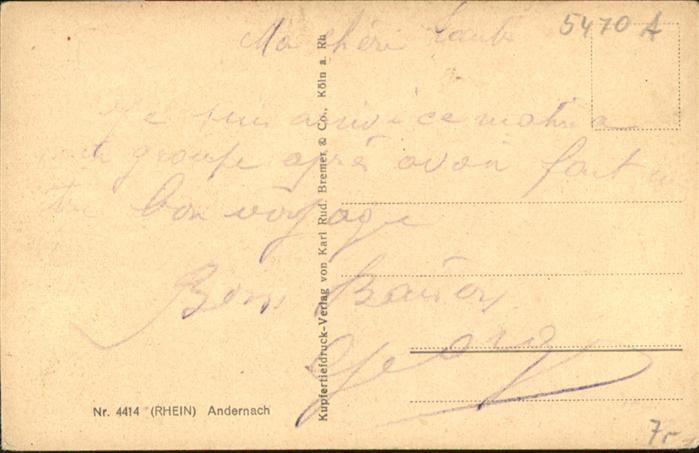 5470 A
Ma chéri
Je suis arrivé ce matin a
groupe après avoir fait un
bon voyage
Bons Baisers
Georg
Kupfertiefdruck-Verlag von Karl Rud. Bremer & Co., Köln a. Rh
Nr. 4414 (RHEIN) Andernach
7-